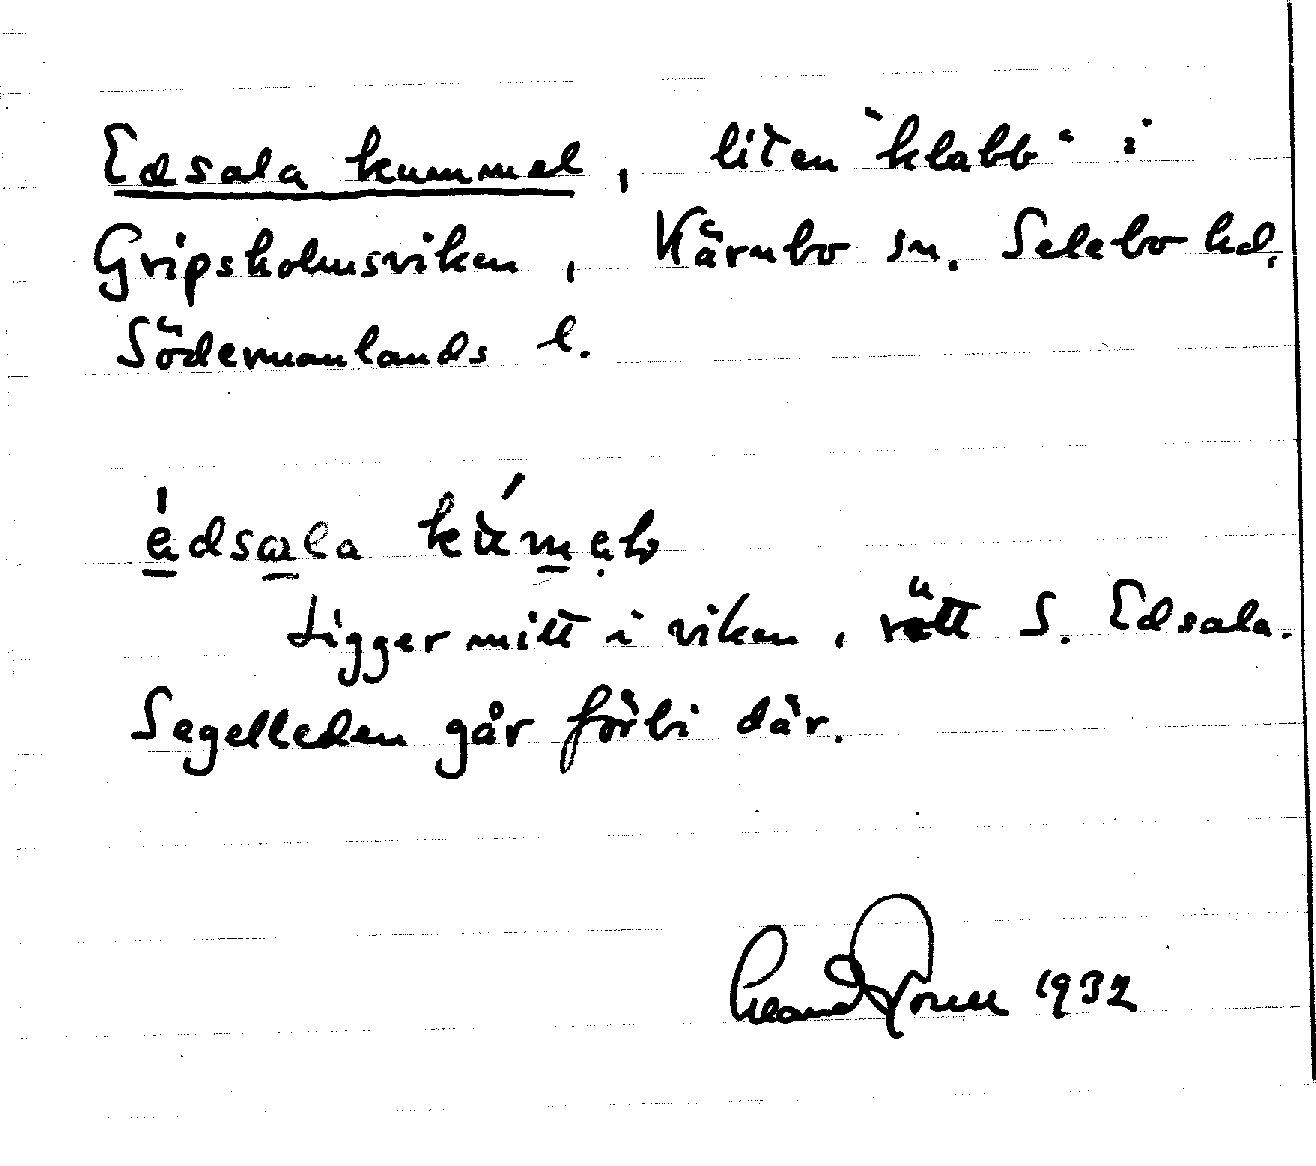 Edsala kummel, liten "klabb" i
Gripsholmsviken, Kärnbo sn. Selebo hd,
Södermanlands l.
édsala
Ligger mitt i viken, rätt S. Edsala.
Segelleden går förbi där.
1932